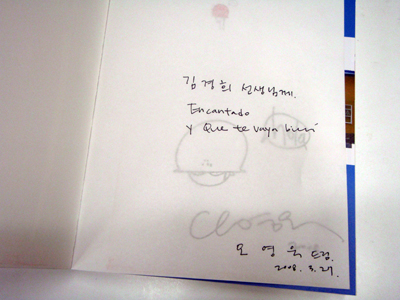 김경희 선생님께.
Encantado
y que te vaya bien
오영욱 드림.
2008. 3. 27.